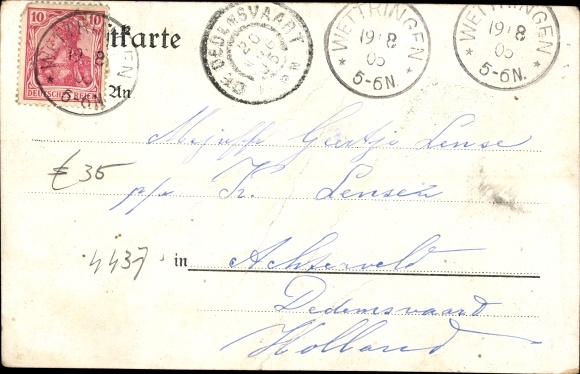 10 10
DEUTSCHES REICH
tkarte
WETTRINGEN
19 8
05
5-6N.
DEDEMSVAART
WETTRINGEN
19 8
05
5-6N.
WETTRINGEN
19 8
05
5-6N.
An
Mejuffr Geertje Lense
€ 35
p/a K. Lensen
4437
in Achterveld
Dedemsvaard
Holland